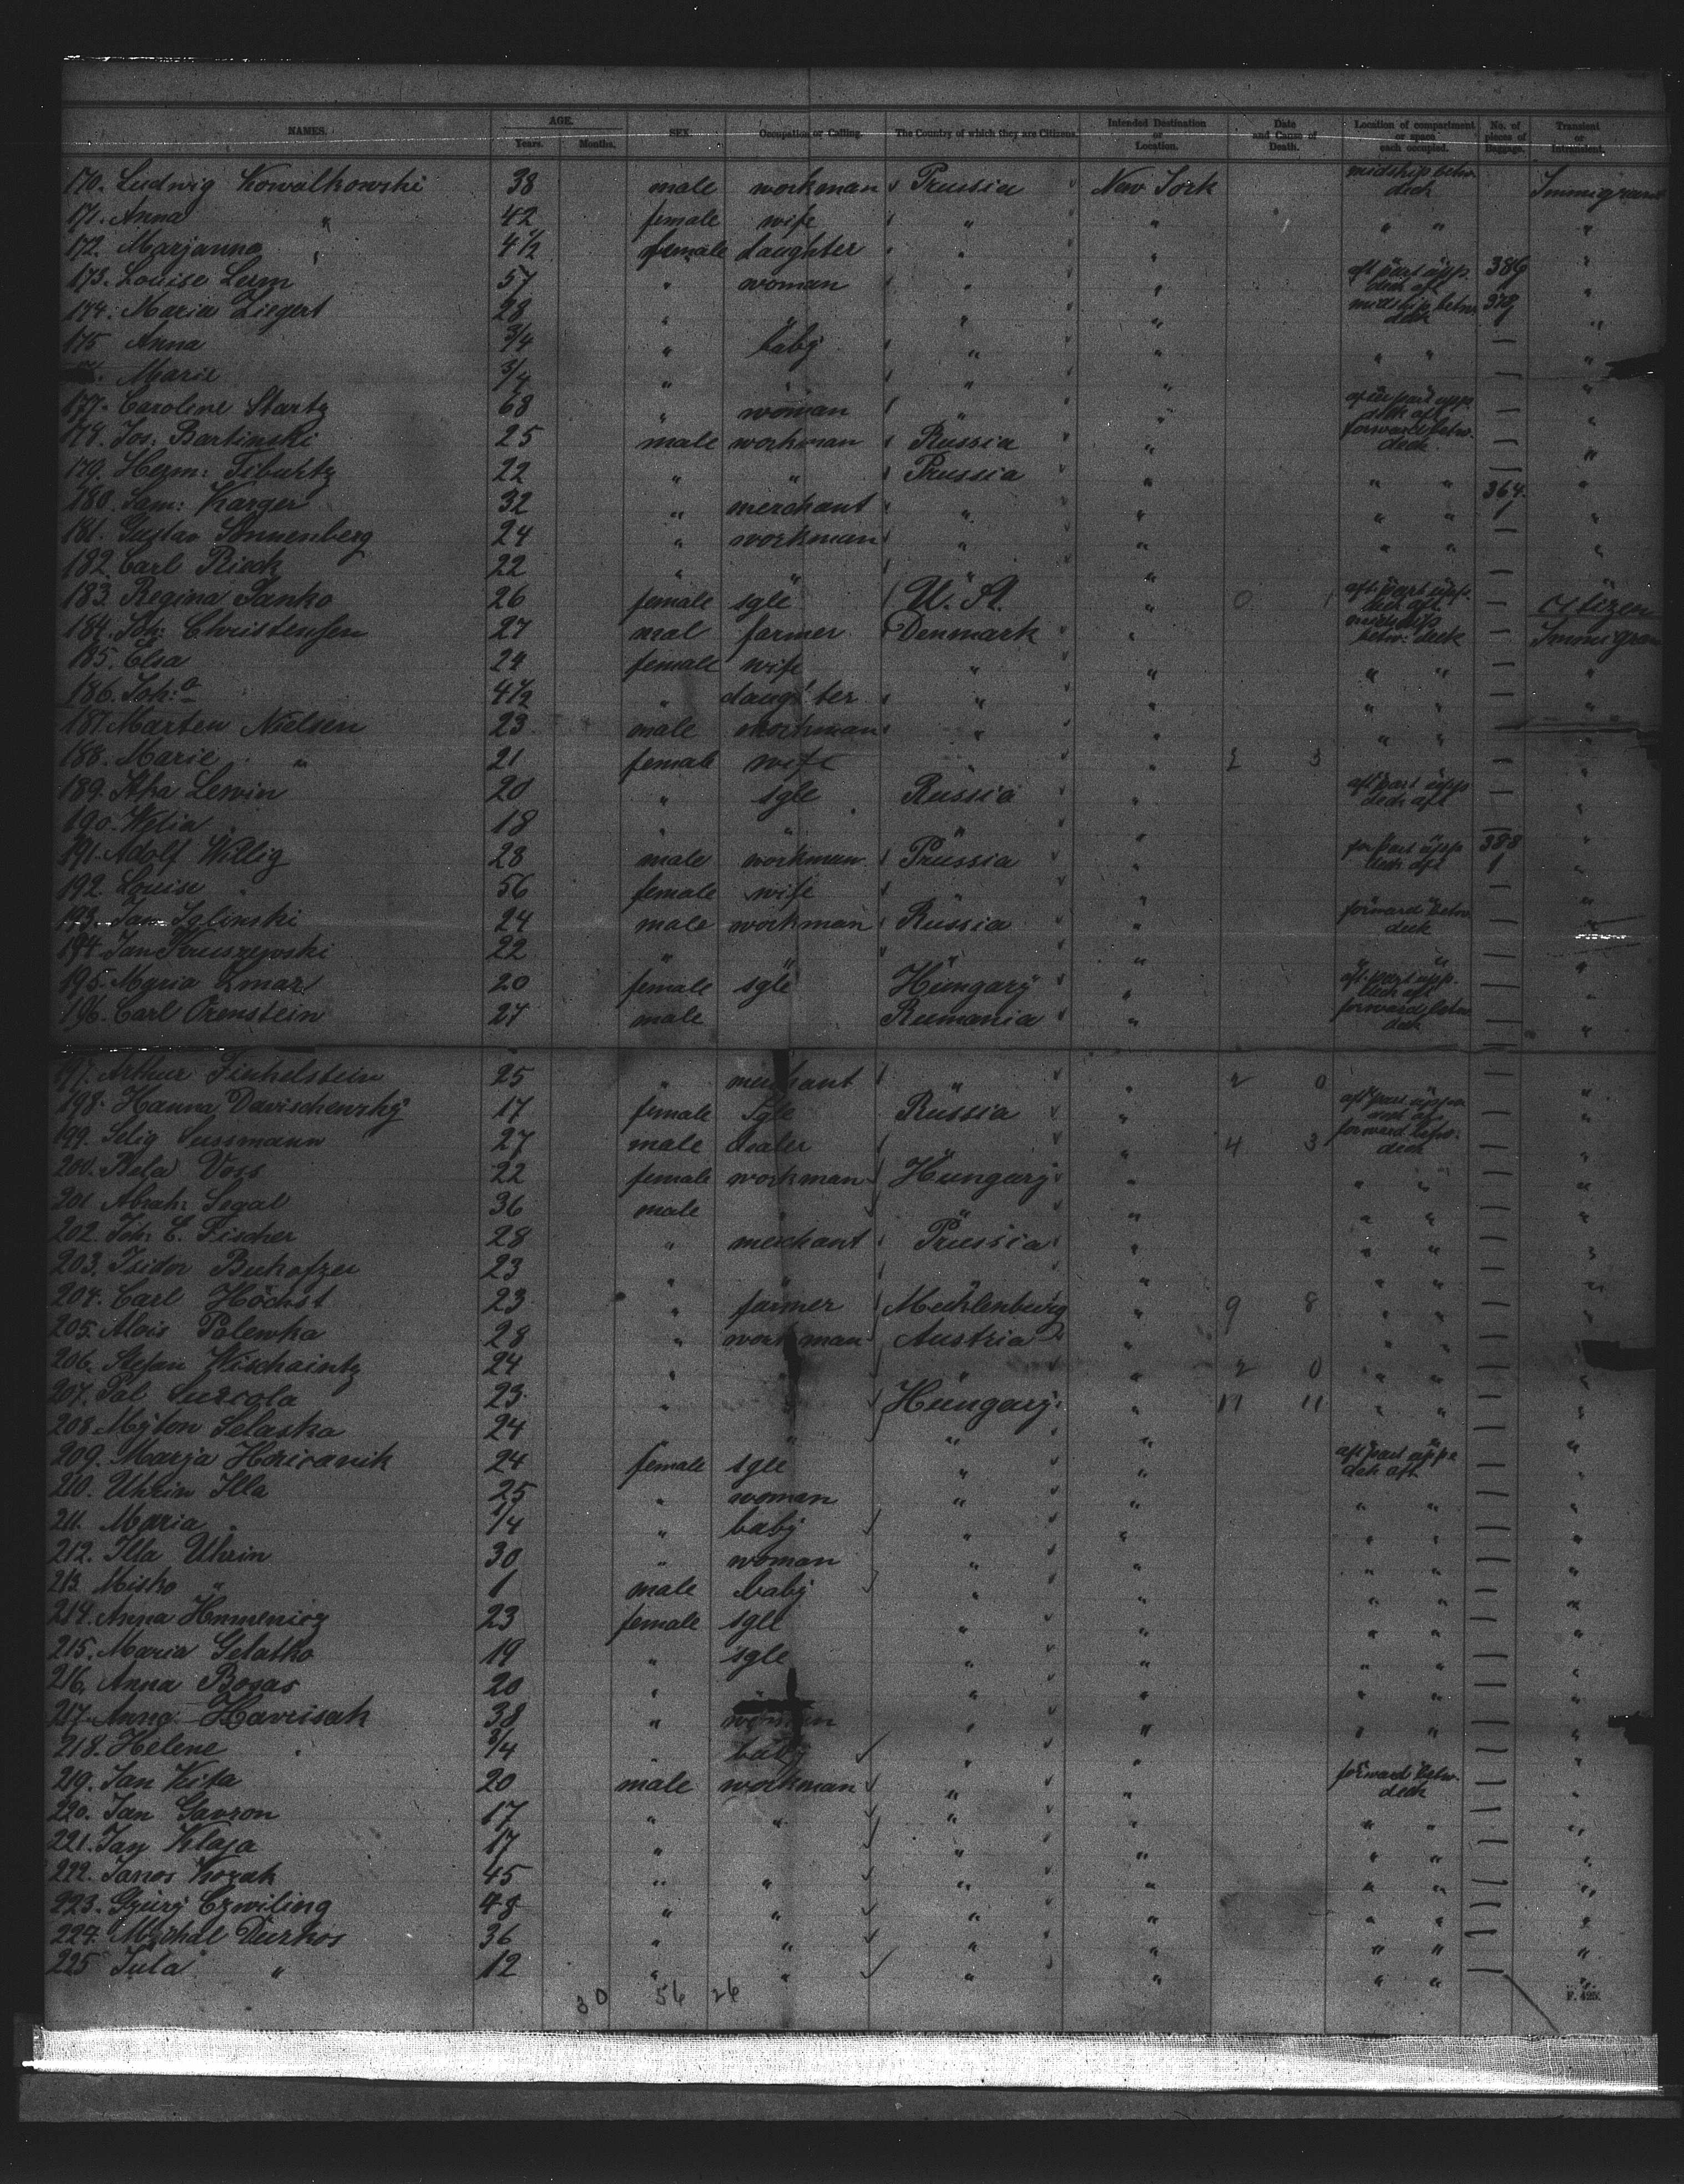 NAMES. AGE. Years. Months. SEX. Occupation or Calling. The Country of which they are Citizens. Intended Destination or Location. Date and Cause of Death. Location of compartment or space each occupied. No. of pieces of Baggage. Transient or
170. Ludwig Kowalkowski 38 male workman Prussia New York midship betw. deck Immigrant
171. Anna " 42 female wife " " " " "
172. Marjanna " 4½ female daughter " " "
173. Louise Lerm 57 " woman " " aft part upp. deck aft 386 "
174. Maria Ziegert 28 " " " " midship betw. deck 378 1 "
175 Anna 3/4 " baby " " " " — "
Marie 3/4 " " " " — "
177. Caroline Startz 68 " woman " " aft part upp. deck aft — "
178. Jos. Bartinski 25 male workman Russia " forward betw. deck — "
179. Herm: Tiburtz 22 " " Prussia " " " — "
180. Sam: Karger 32 " merchant " " " " 364. 1 "
181. Gustav Sonnenberg 24 " workman " " " " — "
182. Carl Rieck 22 " " " " —
183. Regina Janko 26 female sgle U. St. " 0 1 aft part upp. deck aft — citizen
184. Joh: Christensen 27 mal farmer Denmark " midship betw: deck — Immigran
185. Elsa 24 female wife " " " " — "
186. Joh:a 4½ " daughter " " " " — "
187. Marten Nielsen 23 male workman " " " " — "
188. Marie " 21 female wife " " 2 3 — "
189. Lewin 20 " sgle Russia " aft part upp deck aft — "
190. 18 " " " " — "
191. Adolf Willig 28 male workman Prussia " part upp deck aft 388 1 "
192. Louise " 56 female wife " " — "
193. Jan Iglinski 24 male workman Russia " forward betw. deck — "
194. Jan Kruszewski 22 " " " " " " — "
195. Maria 20 female sgle Hungary " aft part upp. deck aft — "
196. Carl Orenstein 27 male Rumania " forward betw. deck — "
197. Arthur Finkelstein 25 " merchant " " 2 0 — "
198. Hanna Davischewsky 17 female Sgle Russia " aft part upp — "
199. Selig Sussmann 27 male dealer " " 4 3 forward betw. deck — "
200. Bela Voss 22 female workman Hungary " " " — "
201 Abrah: Segal 36 male " " " " " — "
202. Joh: C. Fischer 28 " merchant Prussia " " " — "
203. Isidor 23 " " " " " — "
204. Carl Höchst 23 " farmer Mecklenburg " 9 8 " " — "
205. Alois Polewka 28 " workman Austria " " " — "
206. Stefan Wischaintz 24 " " " " 2 0 " " — "
207. Pal 23 " " Hungary " 17 11 " " — "
208 Selaska 24 " " " " " — "
209. Marja 24 female sgle " " aft part upp. deck aft — "
210. Uhrin Illa 25 " woman " " " " — "
211. Maria " 1/4 " baby " " " " — "
212. Illa Uhrin 30 " woman " " " " — "
213. Misko " 1 male baby " " " " — "
214. Anna 23 female sgle " " " " — "
215. Maria Gelatko 19 " sgle " " " " — "
216. Anna Bogas 20 " " " " " " — "
217. Anna Havrisak 38 " woman " " " " — "
218. Helene " 3/4 " baby " " — "
219. Jan Kita 20 male workman " " forward betw. deck — "
220. Jan Gavron 17 " " " " " " — "
221. Jan Klaja 17 " " " " " — "
222. Janos Kozak 45 " " " " " " — "
223. Czwiling 48 " " " " " " — "
224. Michal Durkos 36 " " " " " " — "
225 Jula " 12 " " " " " " — "
30 56 26
F. 425.